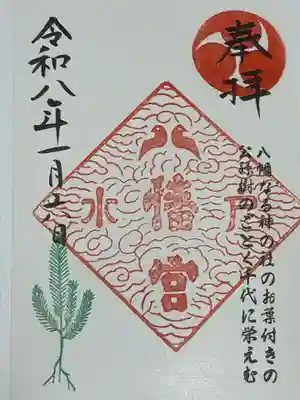 奉拝
八幡なる神の社のお葉付きの
公孫樹のごとく千代に栄えむ
水戸
八幡宮
令和八年一月日